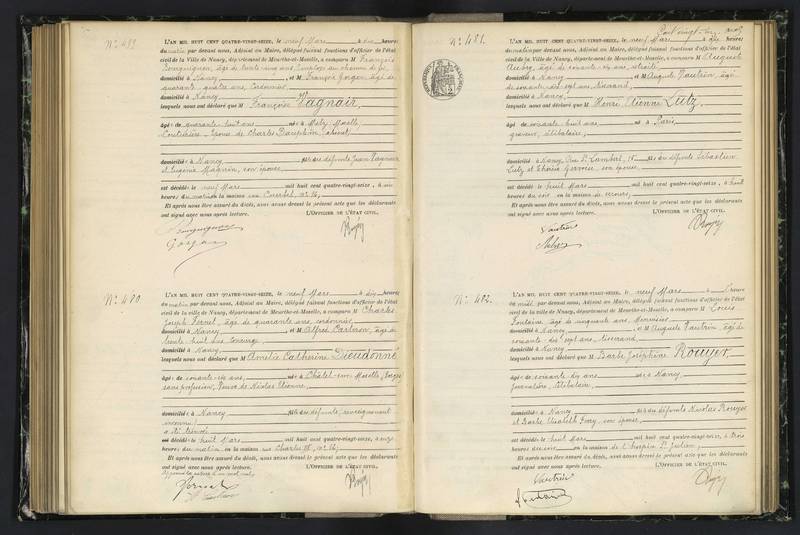 N° 479
L'AN MIL HUIT CENT QUATRE-VINGT-SEIZE, le neuf Mars à dix heures
du matin par devant nous, Adjoint au Maire, délégué faisant fonctions d'officier de l'état
civil de la Ville de Nancy, département de Meurthe-et-Moselle, a comparu M François
âgé de trente ans Employé au chemin de fer,
domicilié à Nancy et M François Gorgen, âgé de
quarante quatre ans, Cordonnier
domicilié à Nancy
lesquels nous ont déclaré que M Françoise Vagnair,
âgée de quarante huit ans née à Metz, Moselle,
Couturière, épouse de Charles Dauphin,
domiciliée à Nancy fille des défunts Jean Vagnair
et Eugénie Magnin, son épouse,
est décédée le neuf Mars mil huit cent quatre-vingt-seize, à
heures du matin en la maison rue Courbet, n° 16,
Et après nous être assuré du décès, nous avons dressé le présent acte que les déclarants
ont signé avec nous après lecture. L'OFFICIER DE L'ÉTAT CIVIL,
N° 480
L'AN MIL HUIT CENT QUATRE-VINGT-SEIZE, le neuf Mars à dix heures
du matin, par devant nous, Adjoint au Maire, délégué faisant fonctions d'officier de l'état
civil de la ville de Nancy, département de Meurthe-et-Moselle, a comparu M Charles
Joseph Fornel, âgé de quarante ans, cordonnier
domicilié à Nancy et M Alfred Carlnon, âgé de
trente huit ans Concierge
domicilié à Nancy
lesquels nous ont déclaré que M Amélie Catherine Dieudonné
âgée de soixante six ans, née à Châtel-sur-Moselle, Vosges
sans profession, Veuve de Nicolas Etienne
domiciliée à Nancy fille des défunts, renseignement
inconnu
est décédée le huit Mars mil huit cent quatre-vingt-seize, à onze
heures du matin en la maison rue Charles III, n° 16,
Et après nous être assuré du décès, nous avons dressé le présent acte que les déclarants
ont signé avec nous après lecture. L'OFFICIER DE L'ÉTAT CIVIL,
N° 481.
L'AN MIL HUIT CENT QUATRE-VINGT-SEIZE, le neuf Mars à dix heures
du matin par devant nous, Adjoint au Maire, délégué faisant fonctions d'officier de l'état
civil de la Ville de Nancy, département de Meurthe-et-Moselle, a comparu M Auguste
Aubry, âgé de soixante dix ans, retraité
domicilié à Nancy et M Auguste Vautrin, âgé
de soixante dix sept ans, tisserand,
domicilié à Nancy,
lesquels nous ont déclaré que M Henri Etienne Lutz,
âgé de soixante huit ans né à Paris
graveur, célibataire,
domicilié à Nancy, rue St Lambert, 15 fils des défunts Sébastien
Lutz et son épouse
est décédé le huit Mars mil huit cent quatre-vingt-seize, à huit
heures du soir en la maison de secours,
Et après nous être assuré du décès, nous avons dressé le présent acte que les déclarants
ont signé avec nous après lecture. L'OFFICIER DE L'ÉTAT CIVIL,
Vautrin
Aubry
N° 482.
L'AN MIL HUIT CENT QUATRE-VINGT-SEIZE, le neuf Mars à heure
du par devant nous, Adjoint au Maire, délégué faisant fonctions d'officier de l'état
civil de la ville de Nancy, département de Meurthe-et-Moselle, a comparu M Louis
Fontaine, âgé de cinquante ans, Menuisier
domicilié à Nancy et M Auguste Vautrin, âgé de
soixante dix sept ans, tisserand
domicilié à Nancy
lesquels nous ont déclaré que M Barbe Joséphine Rouyer,
âgée de soixante dix ans née à Nancy
journalière, célibataire,
domiciliée à Nancy fille des défunts Nicolas Rouyer
et Barbe Elisabeth son épouse,
est décédée le huit Mars mil huit cent quatre-vingt-seize, à trois
heures du soir en la maison de l'hospice St Julien,
Et après nous être assuré du décès, nous avons dressé le présent acte que les déclarants
ont signé avec nous après lecture. L'OFFICIER DE L'ÉTAT CIVIL,
Vautrin